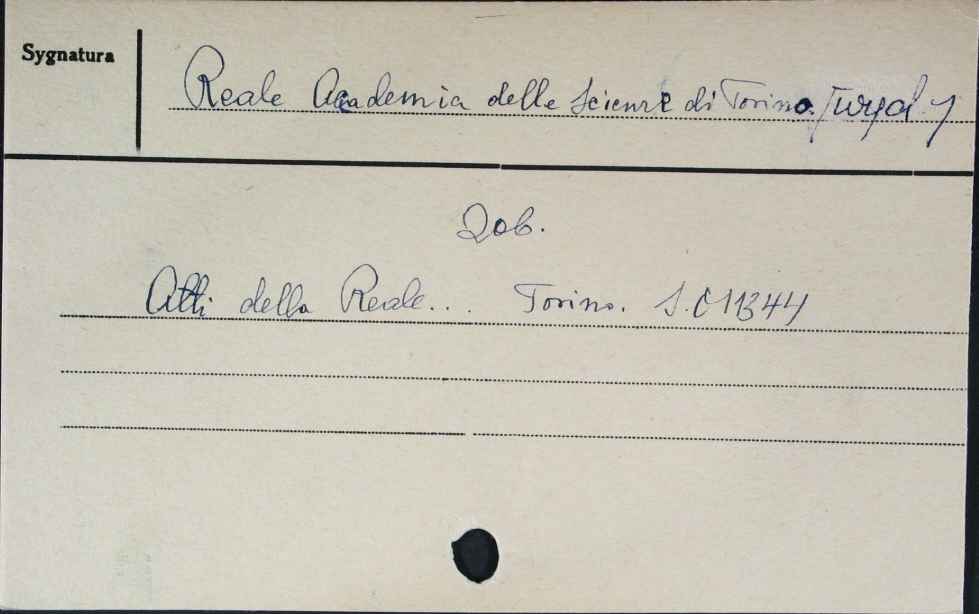 Sygnatura
Reale Accademia delle Scienze di Torino. Turyn
Zob.
Atti della Reale... Torino. S.C 11344